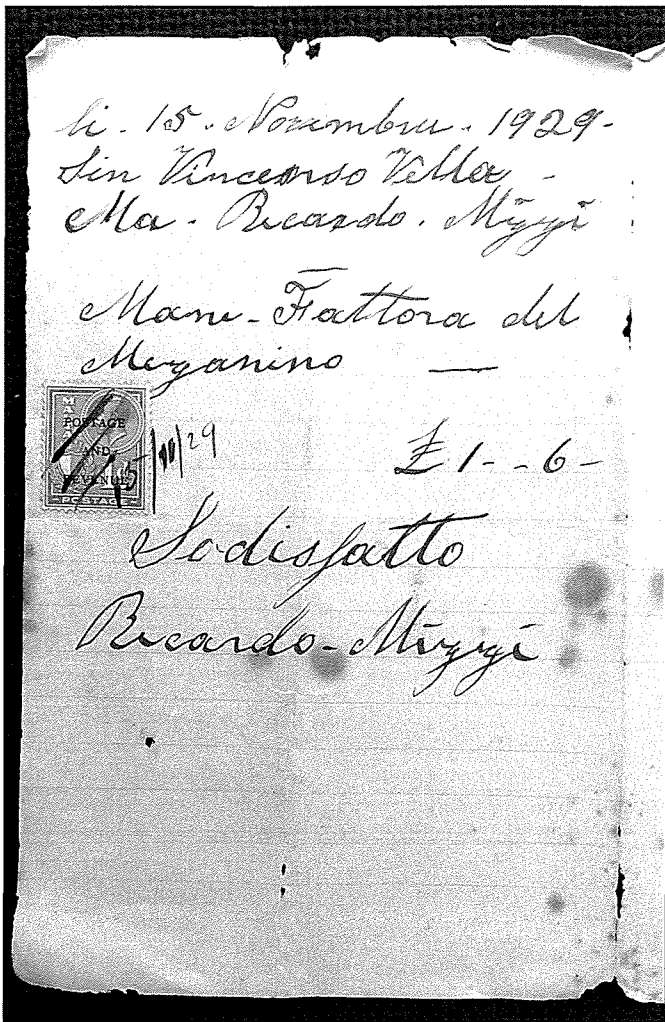 li. 15. Novembru. 1929-
Sin Vincenso Vella -
Ma. Ricardo. Mizzi
Manu-Fattora del
Mezanino —
POSTAGE
AND
REVENUE
POSTAGE
15/11/29
£ 1 - - 6 -
Sodisfatto
Ricardo-Mizzi